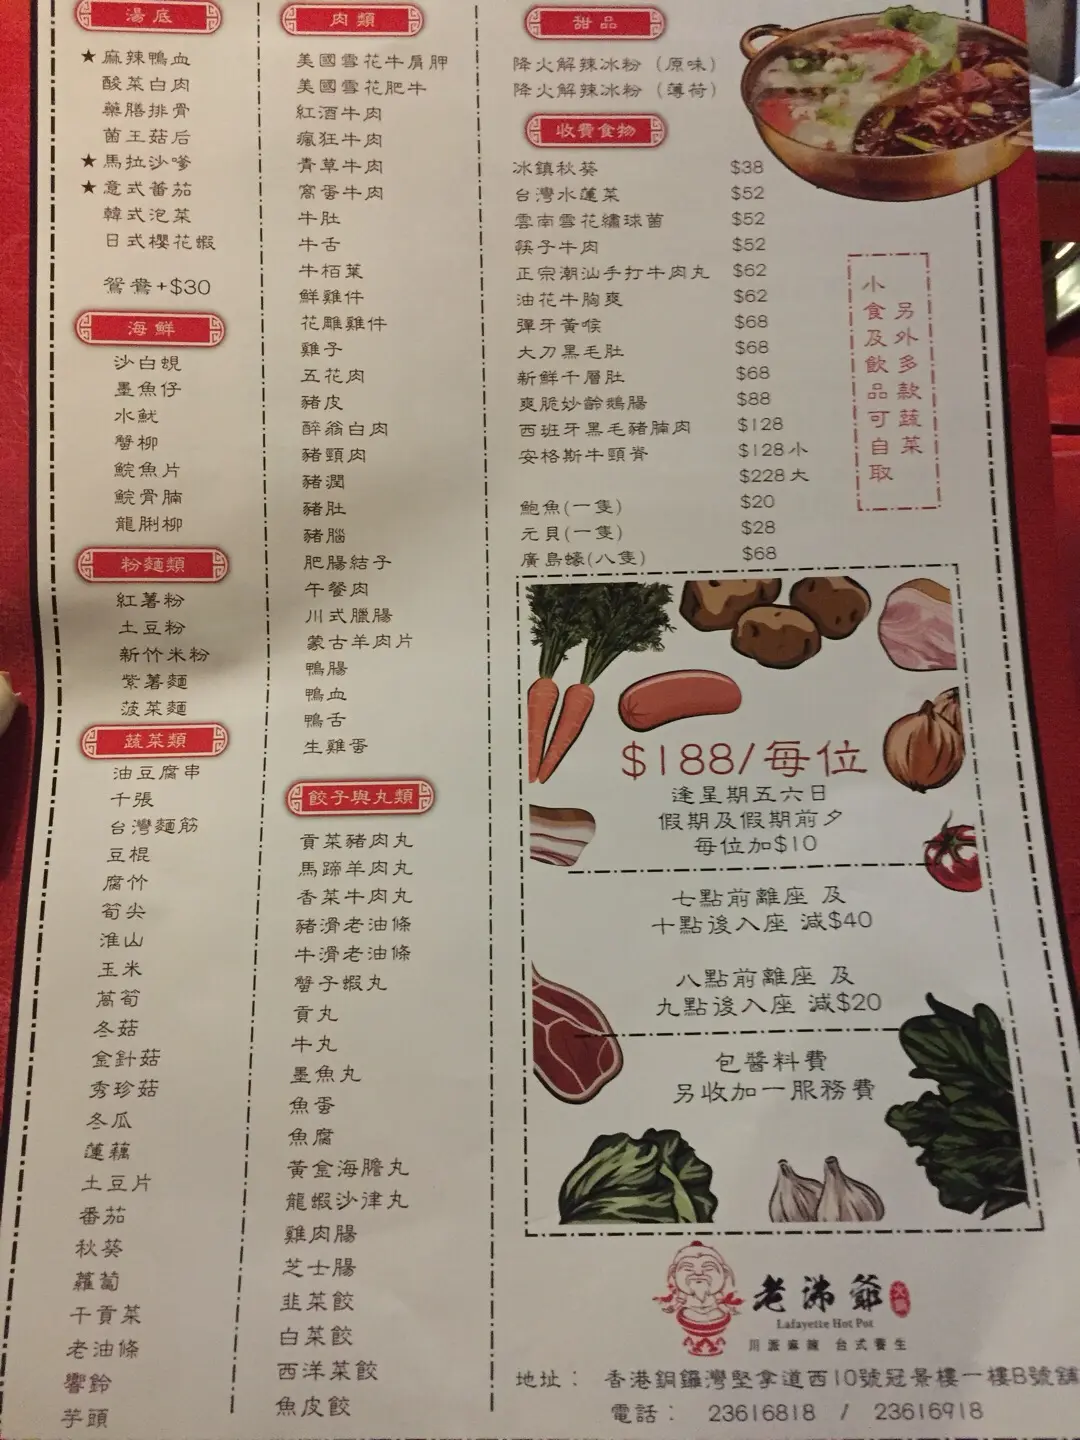 湯底
★麻辣鴨血
酸菜白肉
藥膳排骨
菌王菇后
★馬拉沙嗲
★意式番茄
韓式泡菜
日式櫻花蝦
鴛鴦+$30
海鮮
沙白蜆
墨魚仔
水魷
蟹柳
鯇魚片
鯇骨腩
龍脷柳
粉麵類
紅薯粉
土豆粉
新竹米粉
紫薯麵
菠菜麵
蔬菜類
油豆腐串
千張
台灣麵筋
豆棍
腐竹
筍尖
淮山
玉米
萵筍
冬菇
金針菇
秀珍菇
冬瓜
蓮藕
土豆片
番茄
秋葵
蘿蔔
干貢菜
老油條
響鈴
芋頭
肉類
美國雪花牛肩胛
美國雪花肥牛
紅酒牛肉
瘋狂牛肉
青草牛肉
窩蛋牛肉
牛肚
牛舌
牛栢葉
鮮雞件
花雕雞件
雞子
五花肉
豬皮
醉翁白肉
豬頸肉
豬潤
豬肚
豬腦
肥腸結子
午餐肉
川式臘腸
蒙古羊肉片
鴨腸
鴨血
鴨舌
生雞蛋
餃子與丸類
貢菜豬肉丸
馬蹄羊肉丸
香菜牛肉丸
豬滑老油條
牛滑老油條
蟹子蝦丸
貢丸
牛丸
墨魚丸
魚蛋
魚腐
黃金海膽丸
龍蝦沙律丸
雞肉腸
芝士腸
韭菜餃
白菜餃
西洋菜餃
魚皮餃
甜品
降火解辣冰粉 (原味)
降火解辣冰粉 (薄荷)
收費食物
冰鎮秋葵 $38
台灣水蓮菜 $52
雲南雪花繡球菌 $52
筷子牛肉 $52
正宗潮汕手打牛肉丸 $62
油花牛胸爽 $62
彈牙黃喉 $68
大刀黑毛肚 $68
新鮮千層肚 $68
爽脆妙齡鵝腸 $88
西班牙黑毛豬腩肉 $128
安格斯牛頸脊 $128小
$228大
鮑魚(一隻) $20
元貝(一隻) $28
廣島蠔(八隻) $68
另外多款蔬菜
小食及飲品可自取
$188/每位
逢星期五六日
假期及假期前夕
每位加$10
七點前離座 及
十點後入座 減$40
八點前離座 及
九點後入座 減$20
包醬料費
另收加一服務費
老沸爺
火鍋
Lafayette Hot Pot
川派麻辣 台式養生
地址： 香港銅鑼灣堅拿道西10號冠景樓一樓B號舖
電話： 23616818 / 23616918